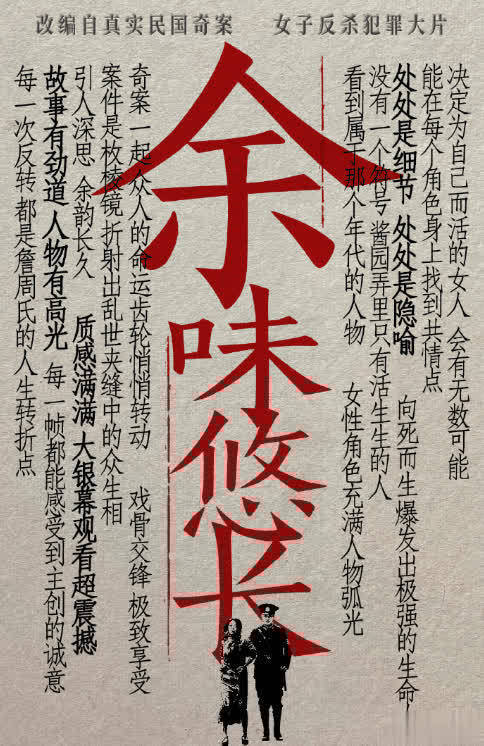 改编自真实民国奇案 女子反杀犯罪大片
决定为自己而活的女人 会有无数可能
能在每个角色身上找到共情点
处处是细节 处处是隐喻 向死而生爆发出极强的生命
没有一个符号 酱园弄里只有活生生的人
看到属于那个年代的人物 女性角色充满人物弧光
余味悠长
奇案一起众人的命运齿轮悄悄转动 戏骨交锋 极致享受
案件是枚棱镜 折射出乱世夹缝中的众生相
引人深思 余韵长久 质感满满 大银幕观看超震撼
故事有劲道 人物有高光 每一帧都能感受到主创的诚意
每一次反转 都是詹周氏的人生转折点